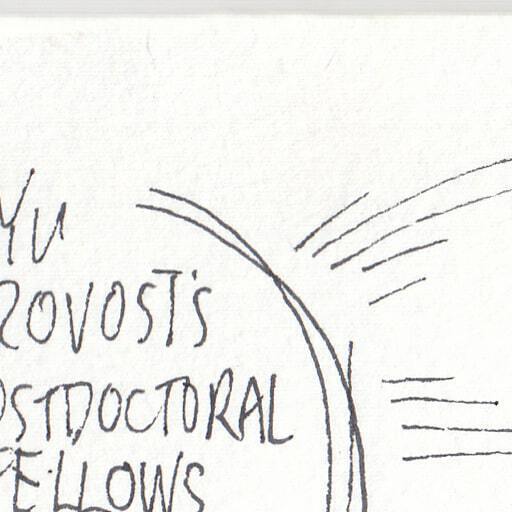 YU
ROVOST'S
OSTDOCTORAL
FELLOWS